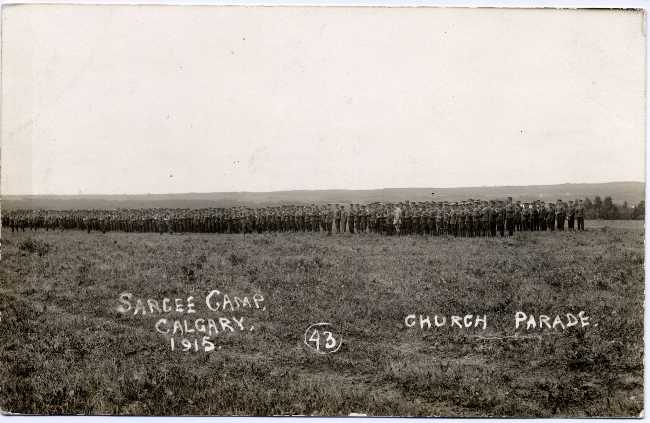 SARCEE CAMP,
CALGARY.
1915.
43
CHURCH PARADE.